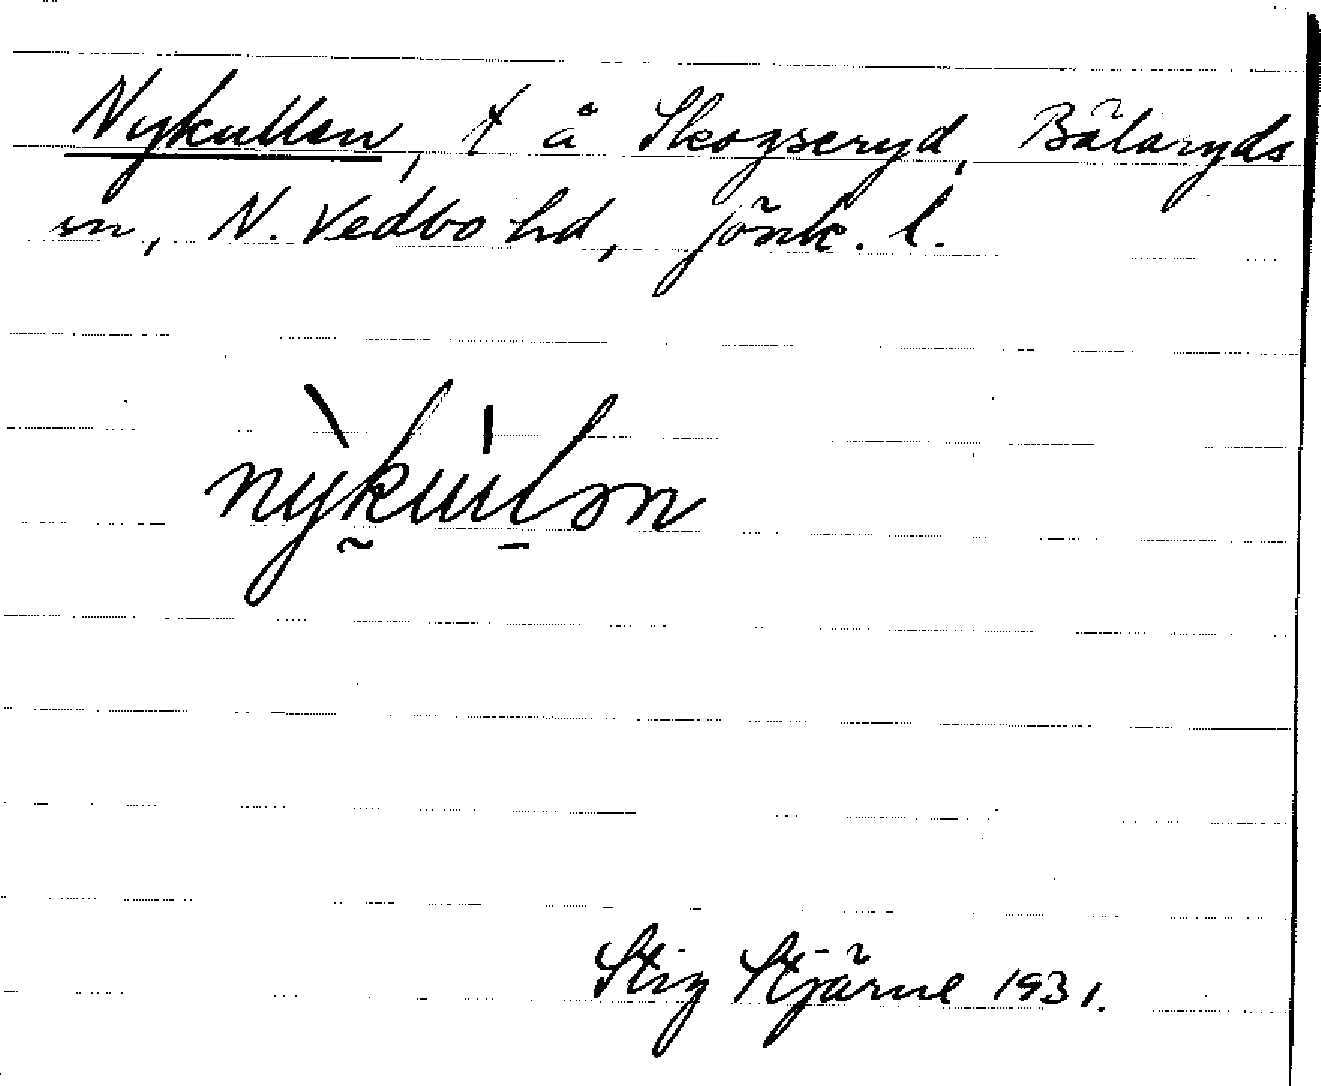 Nykullen, t å Skogseryd, Bälaryds
sn, N. Vedbo hd, Jönk. l.
nỳkúlən
Stig Stjärne 1931.